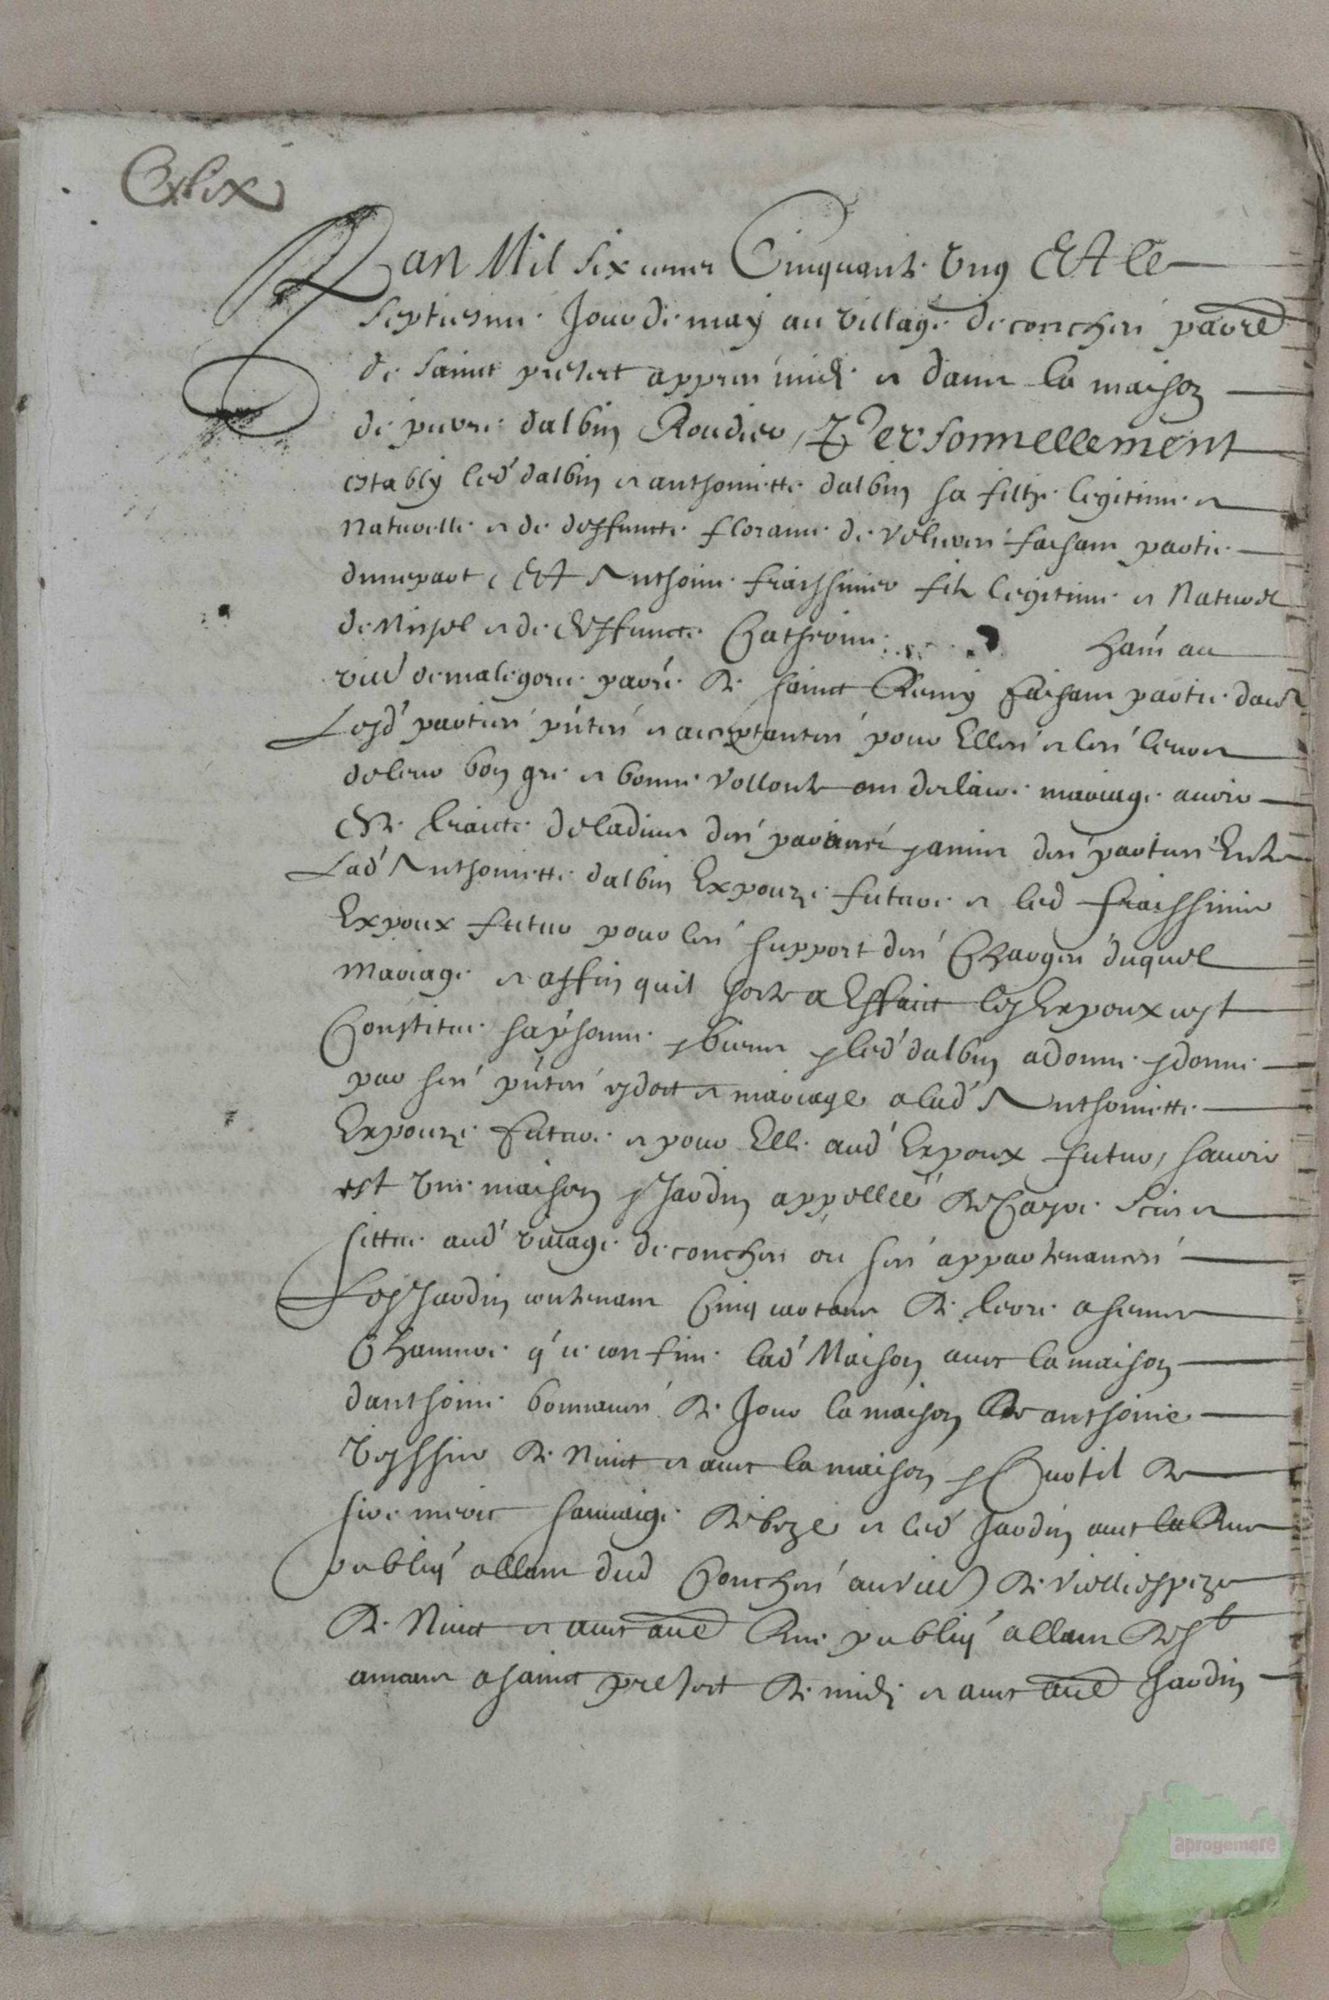 Cxlix
Lan Mil six cens Cinquante Ung Et le
septiesme Jour de may au village de conches parre
de sainct preject appres midi et dans la maison
de pierre dalbin Roudier, Personnellement
estably led dalbin et anthoinette dalbin sa filhe legitime et
Naturelle et de deffuncte florance de faisans partie
dunepart, Et Anthoine fraissinier filz legitime et Naturel
de et de deffuncte Catherine hant au
villé parre de sainct Remy faisans partie dautre
Lesd parties pntes et acceptantes pour Elles et les leurs
deleur bon gre et bonne vollonte ont mariage
Et traicte deladvis des parans et amis des parties Entre
Lad Anthoinette dalbin Expouze future et led fraissinier
Expoux futur pour les support des Charges duquel
Mariage et affin quil sorte a Effaict les Expoux cest
Constitue sa psonne et biens et led dalbin a donne et donne
par ses pntes et mariage a lad Anthoinette
Expouze future et pour Elle aud Expoux futur, savoir
est Une maison et Jardin appellée de size et
sittue aud village de conches ou ses appartenances
Led Jardin contenant Cinq cartons de terre a semer
Chanvre que confine lad Maison avec la maison
danthoine de Jour la maison de anthoine
de Nuict et avec la maison et Curtil de
sire led Jardin avec la Rue
publiq allant dud Conches au villé de
de Nuict et avec aue Rue publiq allant de st
amans a sainct preject de midi et avec aue Jardin
aprogemere